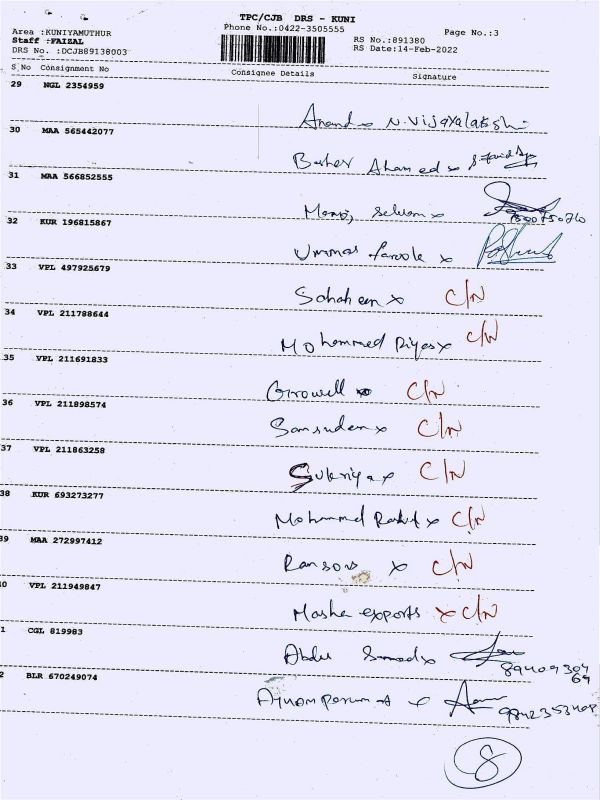 TPC/CJB DRS - KUNI
Phone No.:0422-3505555
Page No.:3
Area :KUNIYAMUTHUR
Staff :FAIZAL
DRS No. :DCJB89138003
RS No.:891380
RS Date:14-Feb-2022
S No Consignment No Consignee Details Signature
29 NGL 2354959
Anand x N.Vijayalakshi
30 MAA 565442077
Basher Ahamed x
31 MAA 566852555
Selvam x
32 KUR 196815867
Ummar farook x
33 VPL 497925679
Sahaheen x C/N
34 VPL 211788644
Mohammed Riyas x C/N
35 VPL 211691833
Growell x C/N
36 VPL 211898574
Samsuden x C/N
37 VPL 211863258
Sukriya x C/N
38 KUR 693273277
Mohammed x C/N
39 MAA 272997412
Ransons x C/N
0 VPL 211949847
Masha exports x C/N
1 CGL 819983
Abdul Samad x
2 BLR 670249074
8